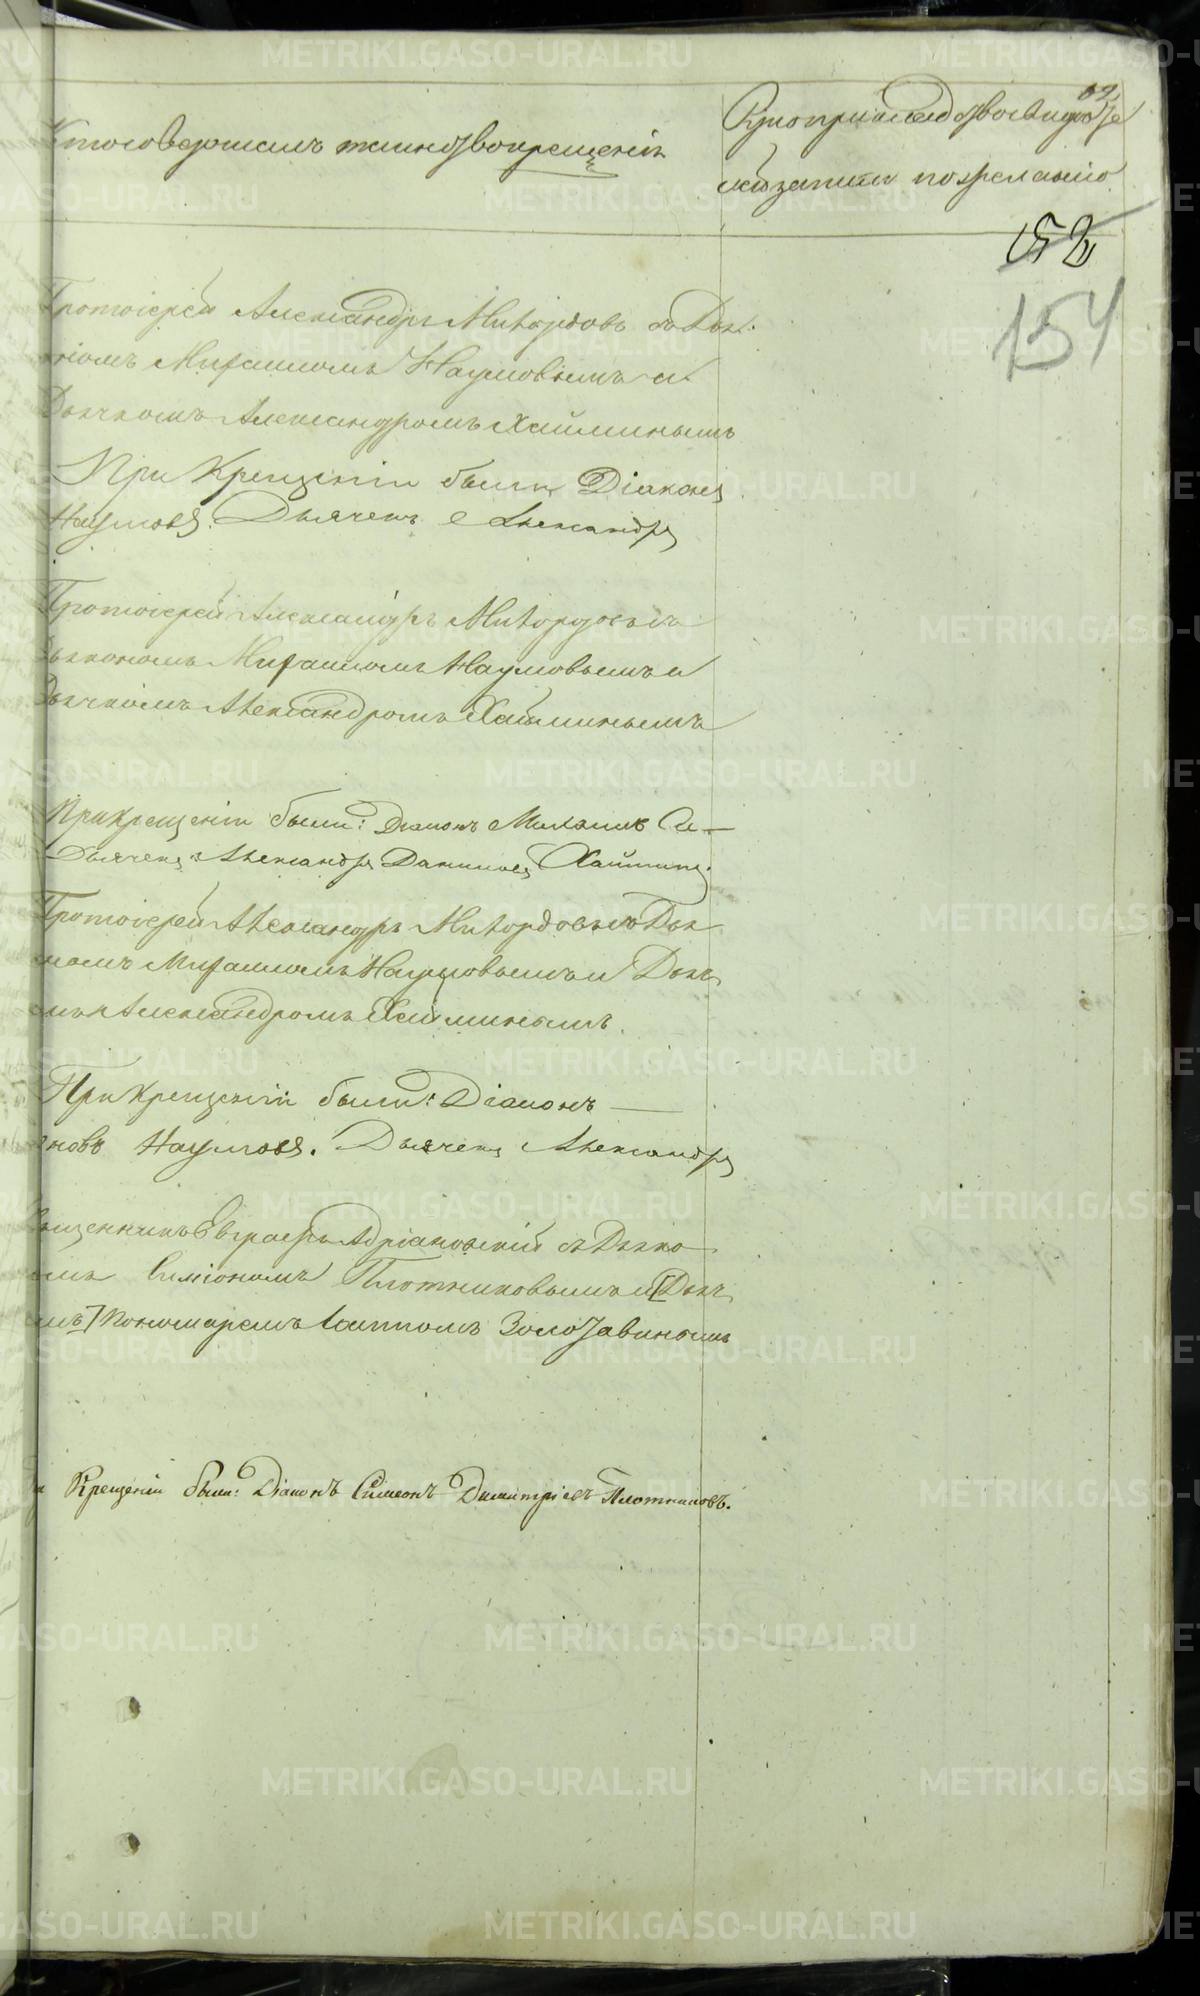 Кто совершалъ таинство крещенія
Рукоприкладство свидѣте
лей записи по желанію
62
152
154
Протоіерей Александръ Миѳордовъ съ Дья
кономъ Михаиломъ Наумовымъ и
Дьячкомъ Александромъ Хайминымъ
При Крещеніи были Діаконъ
Наумовъ. Дьячекъ Александръ
Протоіерей Александръ съ
Дьякономъ Михаиломъ Наумовымъ и
Дьячкомъ Александромъ Хайминымъ
При крещеніи были: Діаконъ Михаилъ Си—
Дьячекъ Александръ Даниловъ Хайминъ.
Протоіерей Александръ съ Дья
кономъ Михаиломъ Наумовымъ и Дьяч
комъ Александромъ Хайминымъ.
При крещеніи были: Діаконъ —
новъ Наумовъ. Дьячекъ Александръ
Священникъ Евграфъ Адріановскій съ Дьяко
омъ Симіономъ Плотниковымъ и [Дьяч
омъ] Пономаремъ Іоанномъ Золотавинымъ
и Крещеніи были: Діаконъ Симеонъ Димитріевъ Плотниковъ.
METRIKI.GASO-URAL.RU